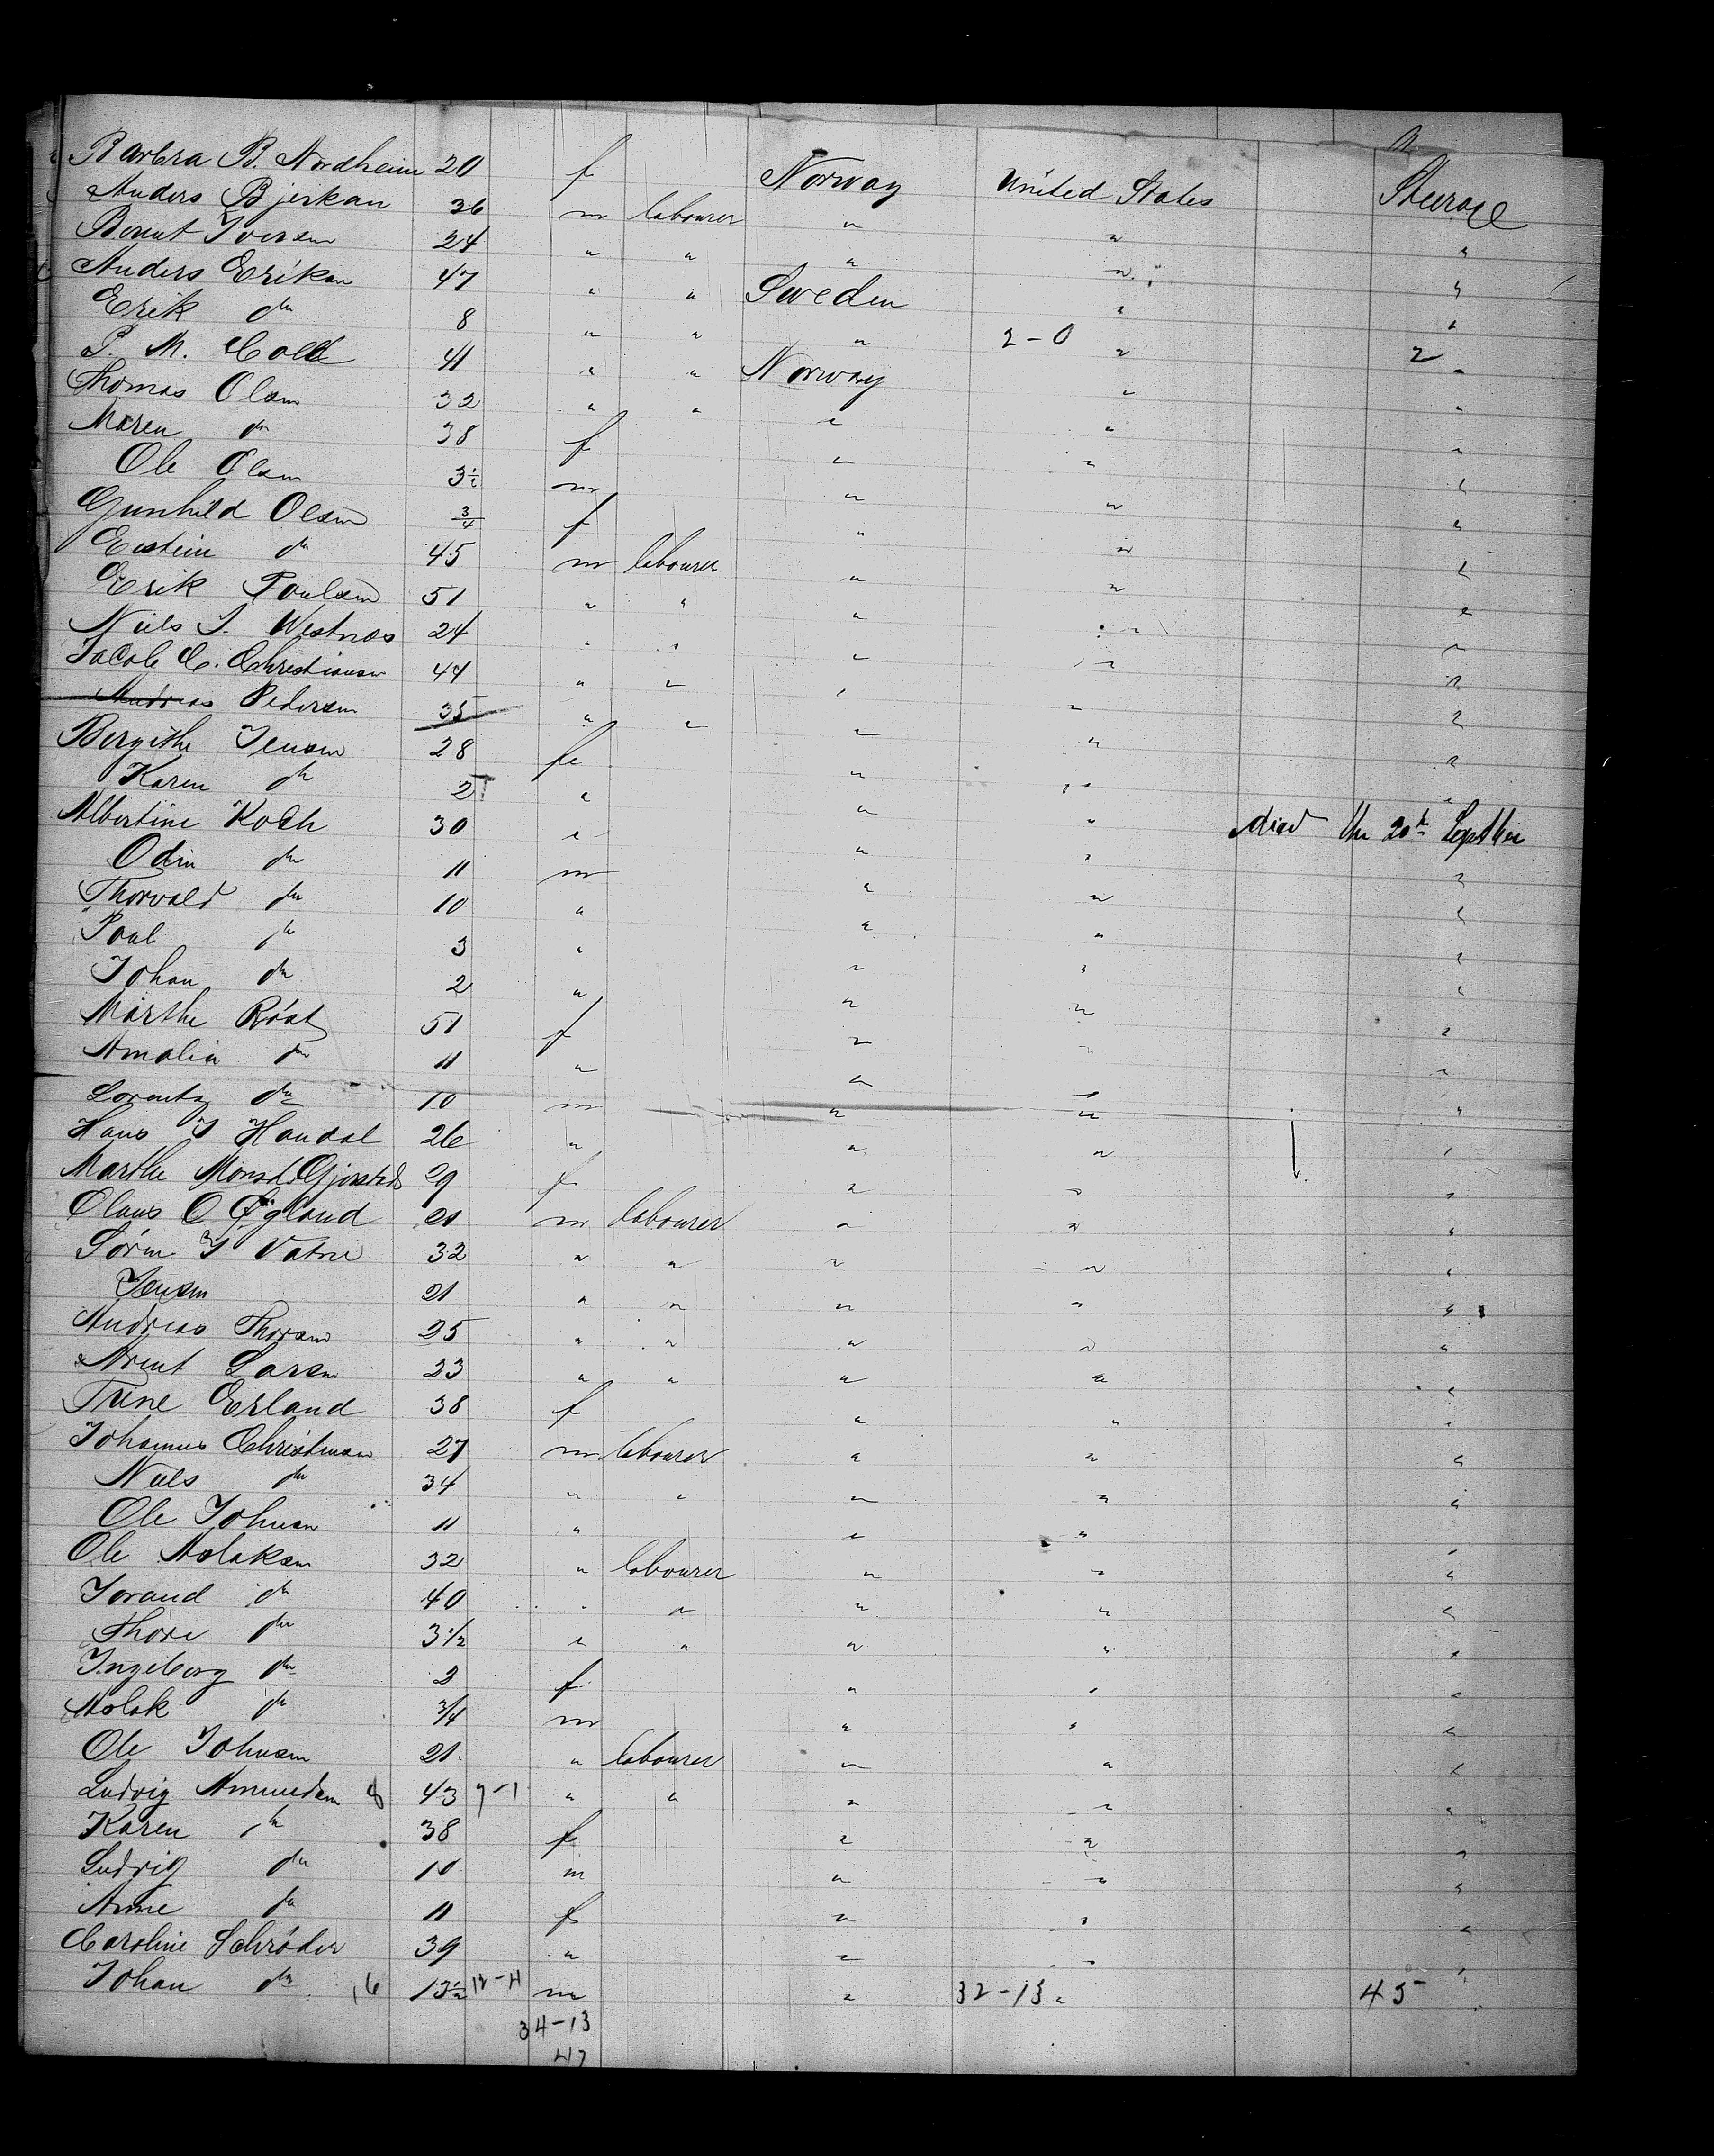 Barbra B. Nordheim 20 f Norway United States Steerage
Anders Bjerkan 36 m labourer " " "
Berent Iversen 24 " " " " "
Anders Eriksen 47 " " Sweden " "
Erik do 8 " " " 2-0 " 2 "
P. M. 41 " " Norway " "
Thomas Olsen 32 " " " " "
Maren do 38 f " " "
Ole Olsen 3½ m " " "
Gunhild Olsen 3/4 f " " "
Eistein do 45 m labourer " " "
Erik Poulsen 51 " " " " "
Niels I. Westnes 24 " " " " "
Jacob C. Christiansen 44 " " " " "
Andreas Pedersen 35 " " " " "
Bergithe Jensen 28 f " " "
Karen do 2 " " " died the 20th
Albertine Koch 30 " " " "
Odin do 11 m " " "
Thorvald do 10 " " " "
Poul do 3 " " " "
Johan do 2 " " " "
Marthe Röst 51 f " " "
Amalia do 11 " " " "
Lorentz do 10 m " " "
Hans J Haudal 26 " " " "
Marthe 29 f " " "
Olaus O Øgland 21 m labourer " " "
Sören J Vatne 32 " " " " "
Jensen 21 " " " " "
Andreas Thorsen 25 " " " " "
Arent Larsen 23 " " " " "
Trine Erland 38 f " " "
Johannes Christensen 27 m labourer " " "
Niels do 34 " " " " "
Ole Johnsen 11 " " " "
Ole Aslaksen 32 " labourer " " "
Jorand do 40 " " " " "
Thore do 3½ " " " " "
Ingeborg do 2 f " " "
Aslak do 3/4 m " " "
Ole Johnsen 21 " labourer " " "
Ludvig Amundsen 8 43 7-1 " " " " "
Karen do 38 f " " "
Ludvig do 10 m " " "
Anne do 11 f " " "
Caroline Schröder 39 " " " "
Johan do 16 13½ 12-4 m " 32-13 " 45
34-13
47